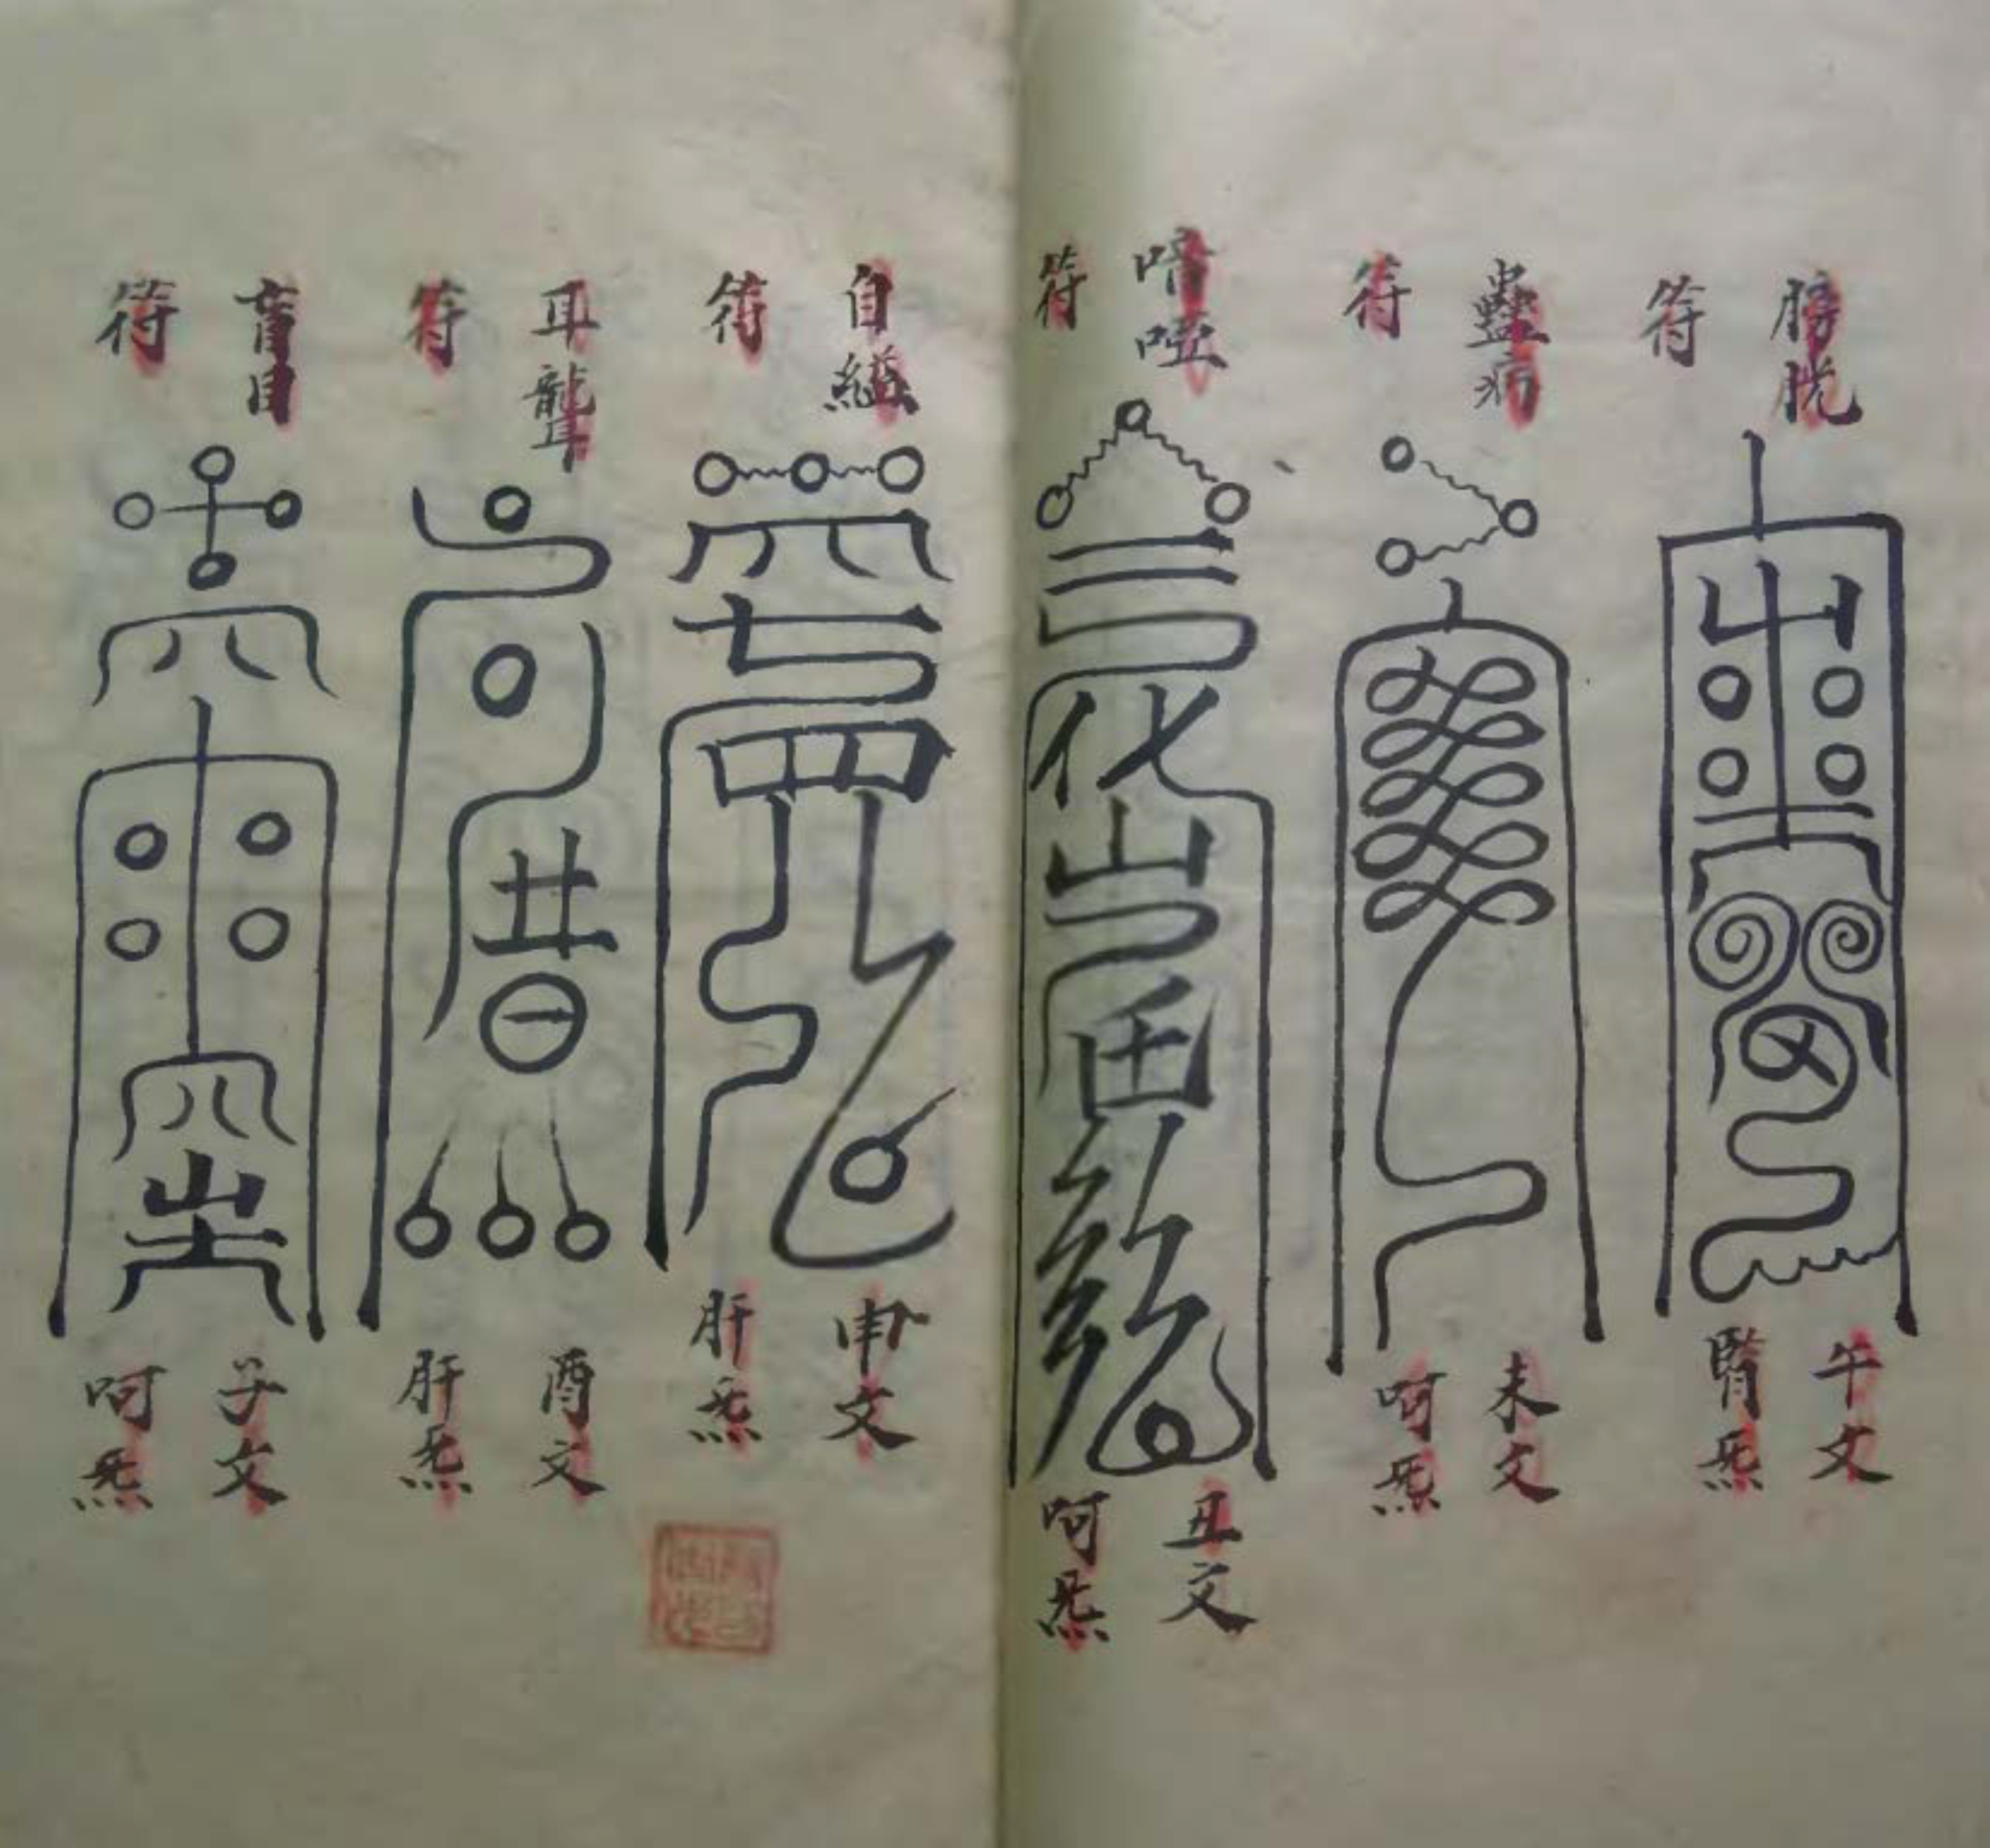 膀胱
符
午文
腎炁
蠱病
符
未文
呵炁
喑啞
符
丑文
呵炁
自縊
符
申文
肝炁
耳聾
符
酉文
肝炁
盲目
符
子文
呵炁